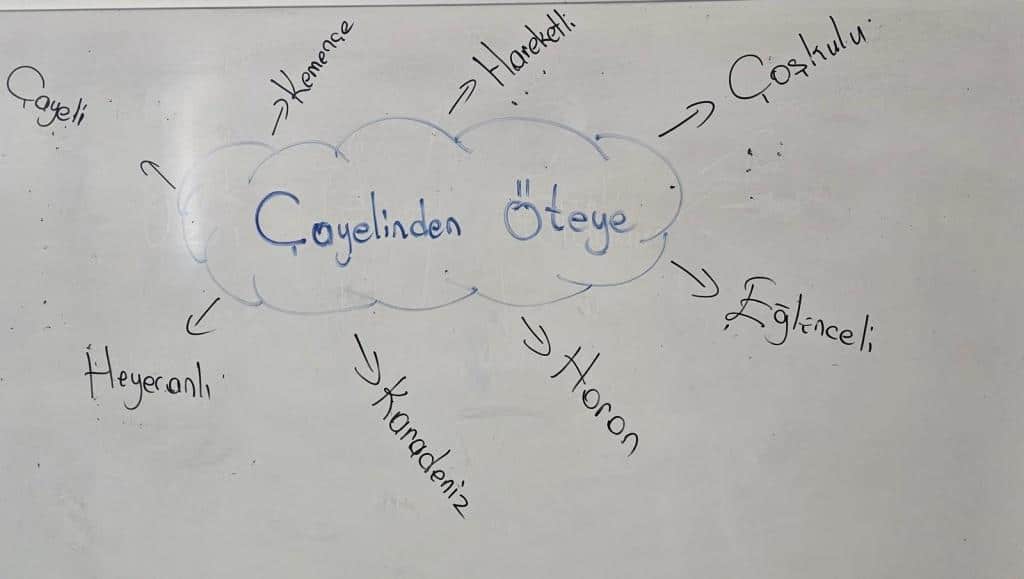 Çayeli
Kemençe
Hareketli
Çoşkulu
Çayelinden Öteye
Eğlenceli
Heyecanlı
Karadeniz
Horon